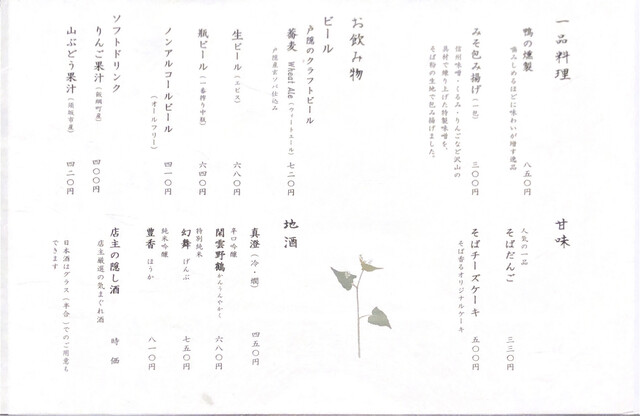 一品料理
鴨の燻製 八五〇円
噛みしめるほどに味わいが増す逸品
みそ包み揚げ(一包) 三〇〇円
信州味噌・くるみ・りんごなど沢山の
具材で練り上げた特製味噌を、
そば粉の生地で包み揚げました。
甘味
人気の一品
そばだんご 三三〇円
そばチーズケーキ 五〇〇円
そば香るオリジナルケーキ
お飲み物
ビール
戸隠のクラフトビール
蕎麦 Wheat Ale(ウィートエール) 七二〇円
戸隠産玄ソバ仕込み
生ビール(ヱビス) 六八〇円
瓶ビール(一番搾り中瓶) 六四〇円
ノンアルコールビール 四一〇円
(オールフリー)
ソフトドリンク
りんご果汁(飯綱町産) 四〇〇円
山ぶどう果汁(須坂市産) 四二〇円
地酒
真澄(冷・燗) 四五〇円
辛口吟醸
閑雲野鶴 かんうんやかく 六八〇円
特別純米
幻舞 げんぶ 七五〇円
純米吟醸
豊香 ほうか 八一〇円
店主の隠し酒 時価
店主厳選の気まぐれ酒
日本酒はグラス(半合)でのご用意も
できます